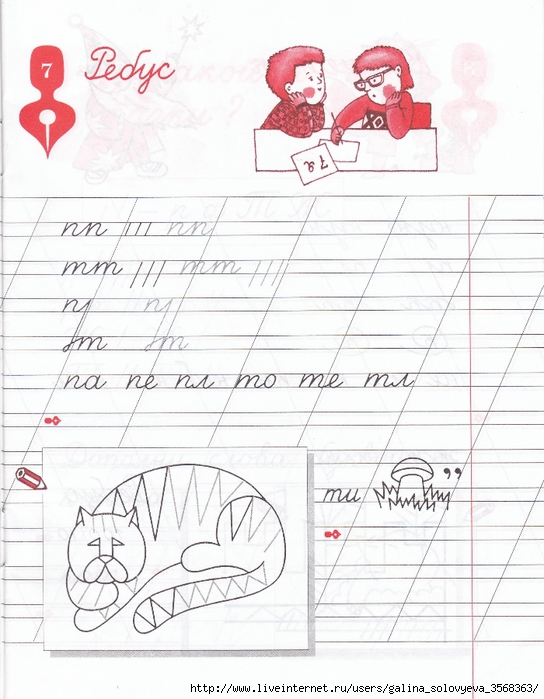 7
Ребус
7 я
пп пп
тт тт
па пе пл то те тл
ти ,,
http://www.liveinternet.ru/users/galina_solovyeva_3568363/